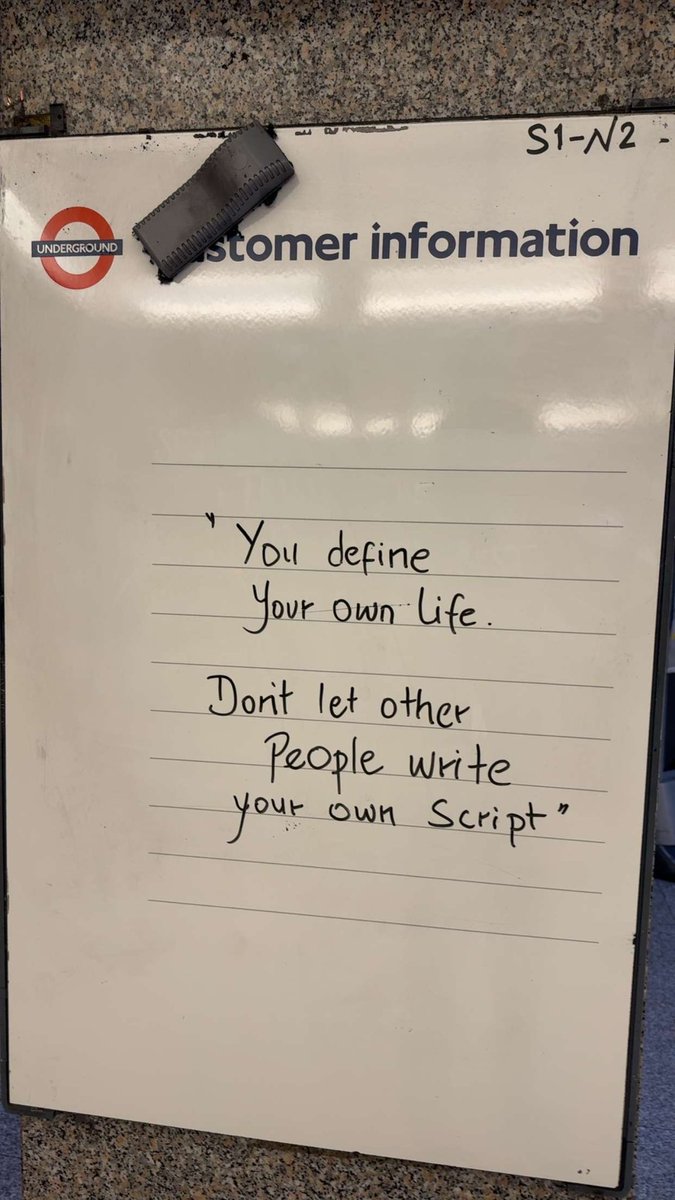 S1-N2 -
UNDERGROUND
stomer information
"You define
your own life.
Don't let other
People write
your own Script"